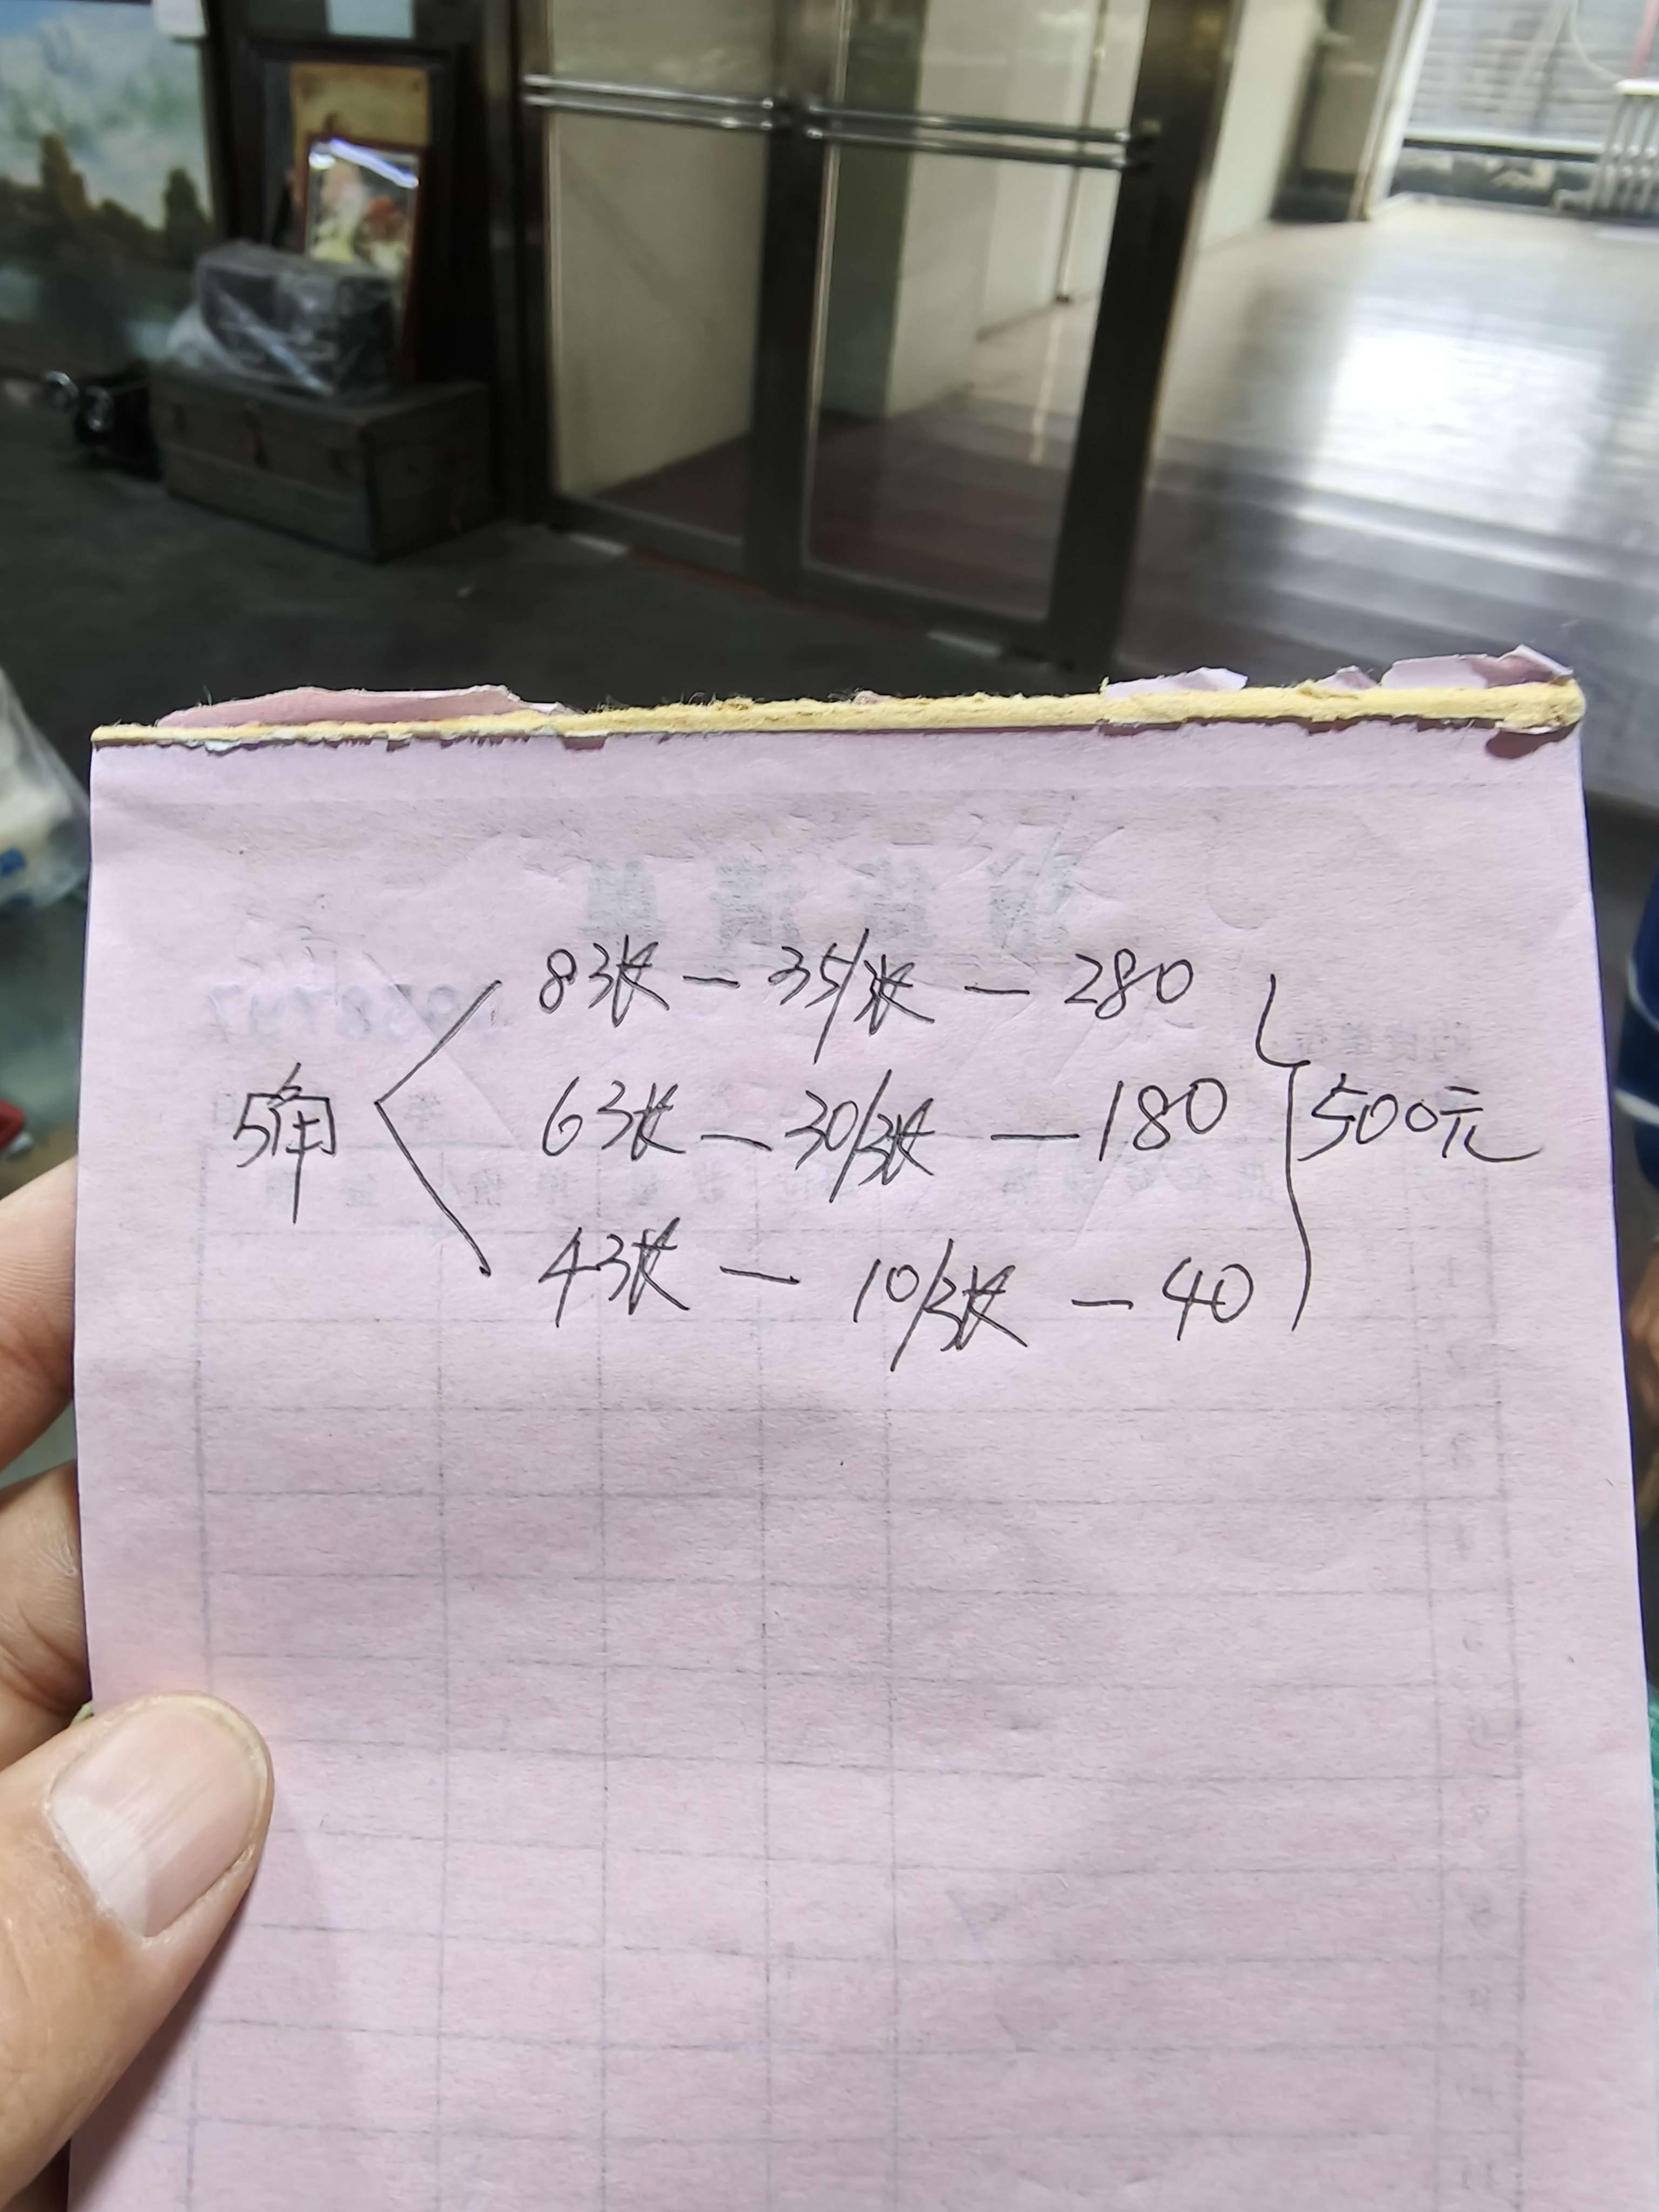 8张 — 35/张 — 280
5角 6张 — 30/张 — 180 500元
4张 — 10/张 — 40